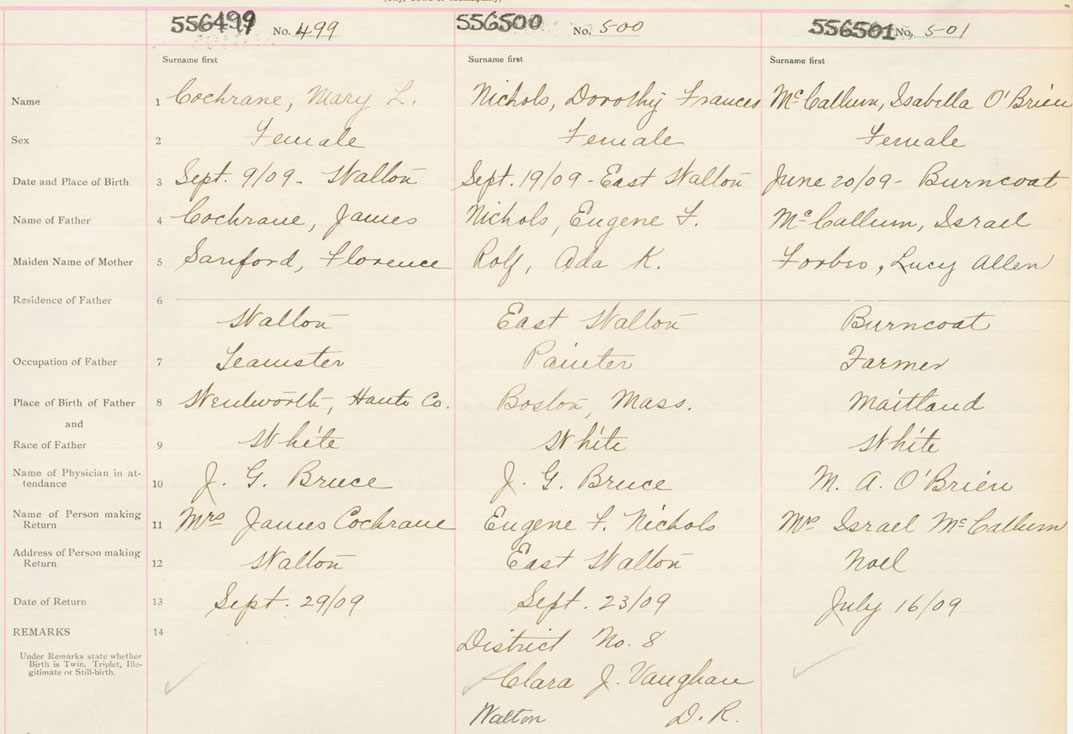 556499 No. 499 556500 No. 500 556501 No. 501
Surname first Surname first Surname first
Name 1 Cochrane, Mary L. Nichols, Dorothy Frances McCallum, Isabella O'Brien
Sex 2 Female Female Female
Date and Place of Birth 3 Sept. 9/09 - Walton Sept. 19/09 - East Walton June 20/09 - Burncoat
Name of Father 4 Cochrane, James Nichols, Eugene F. McCallum, Israel
Maiden Name of Mother 5 Sanford, Florence Rolf, Ada K. Forbes, Lucy Allen
Residence of Father 6
Walton East Walton Burncoat
Occupation of Father 7 Teamster Painter Farmer
Place of Birth of Father 8 Wentworth, Hants Co. Boston, Mass. Maitland
and
Race of Father 9 White White White
Name of Physician in at-
tendance 10 J. G. Bruce J. G. Bruce M. A. O'Brien
Name of Person making
Return 11 Mrs James Cochrane Eugene F. Nichols Israel McCallum
Address of Person making
Return 12 Walton East Walton Noel
Date of Return 13 Sept. 29/09 Sept. 23/09 July 16/09
REMARKS 14 District No. 8
Under Remarks state whether
Birth is Twin, Triplet, Ille-
gitimate or Still-birth.
Clara J. Vaughan
Walton D. R.